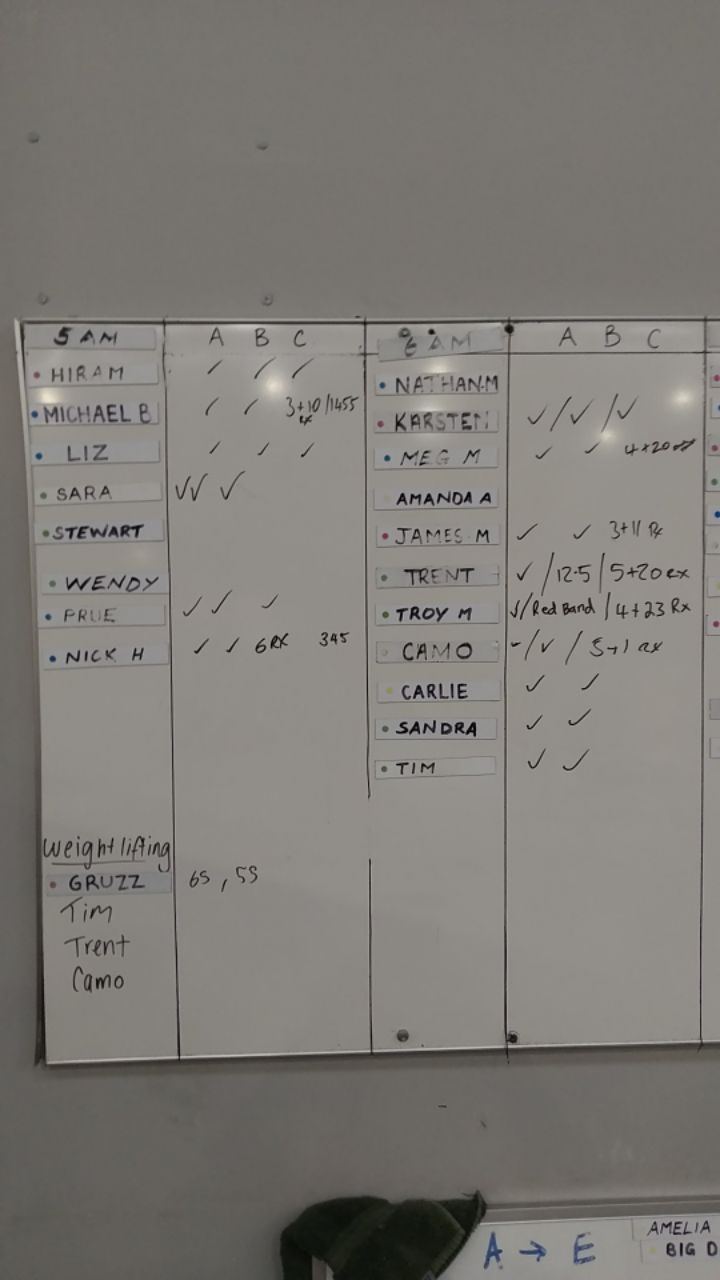 5 AM A B C
HIRAM ✓ ✓ ✓
MICHAEL B ✓ ✓ 3+10/1455
Rx
LIZ ✓ ✓ ✓
SARA ✓✓ ✓
STEWART
WENDY
PRUE ✓ ✓ ✓
NICK H ✓ ✓ 6RX 345
Weightlifting
GRUZZ 65, 55
Tim
Trent
Camo
6 AM A B C
NATHAN.M
KARSTEN ✓/✓/✓
MEG M ✓ ✓ 4+20
AMANDA A
JAMES M ✓ ✓ 3+11 Rx
TRENT ✓/12.5/5+20 rx
TROY M ✓/Red Band/4+23 Rx
CAMO -/✓/5+1 rx
CARLIE ✓ ✓
SANDRA ✓ ✓
TIM ✓ ✓
A → E
AMELIA
BIG D